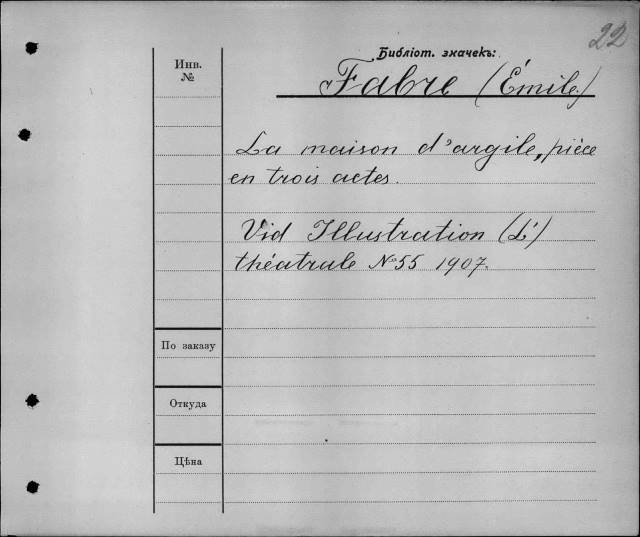 22
Библіот. значекъ:
Инв.
№
Fabre (Émile)
La maison d'argile, pièce
en trois actes.
Vid Illustration (L')
théatrale No 55 1907.
По заказу
Откуда
Цѣна